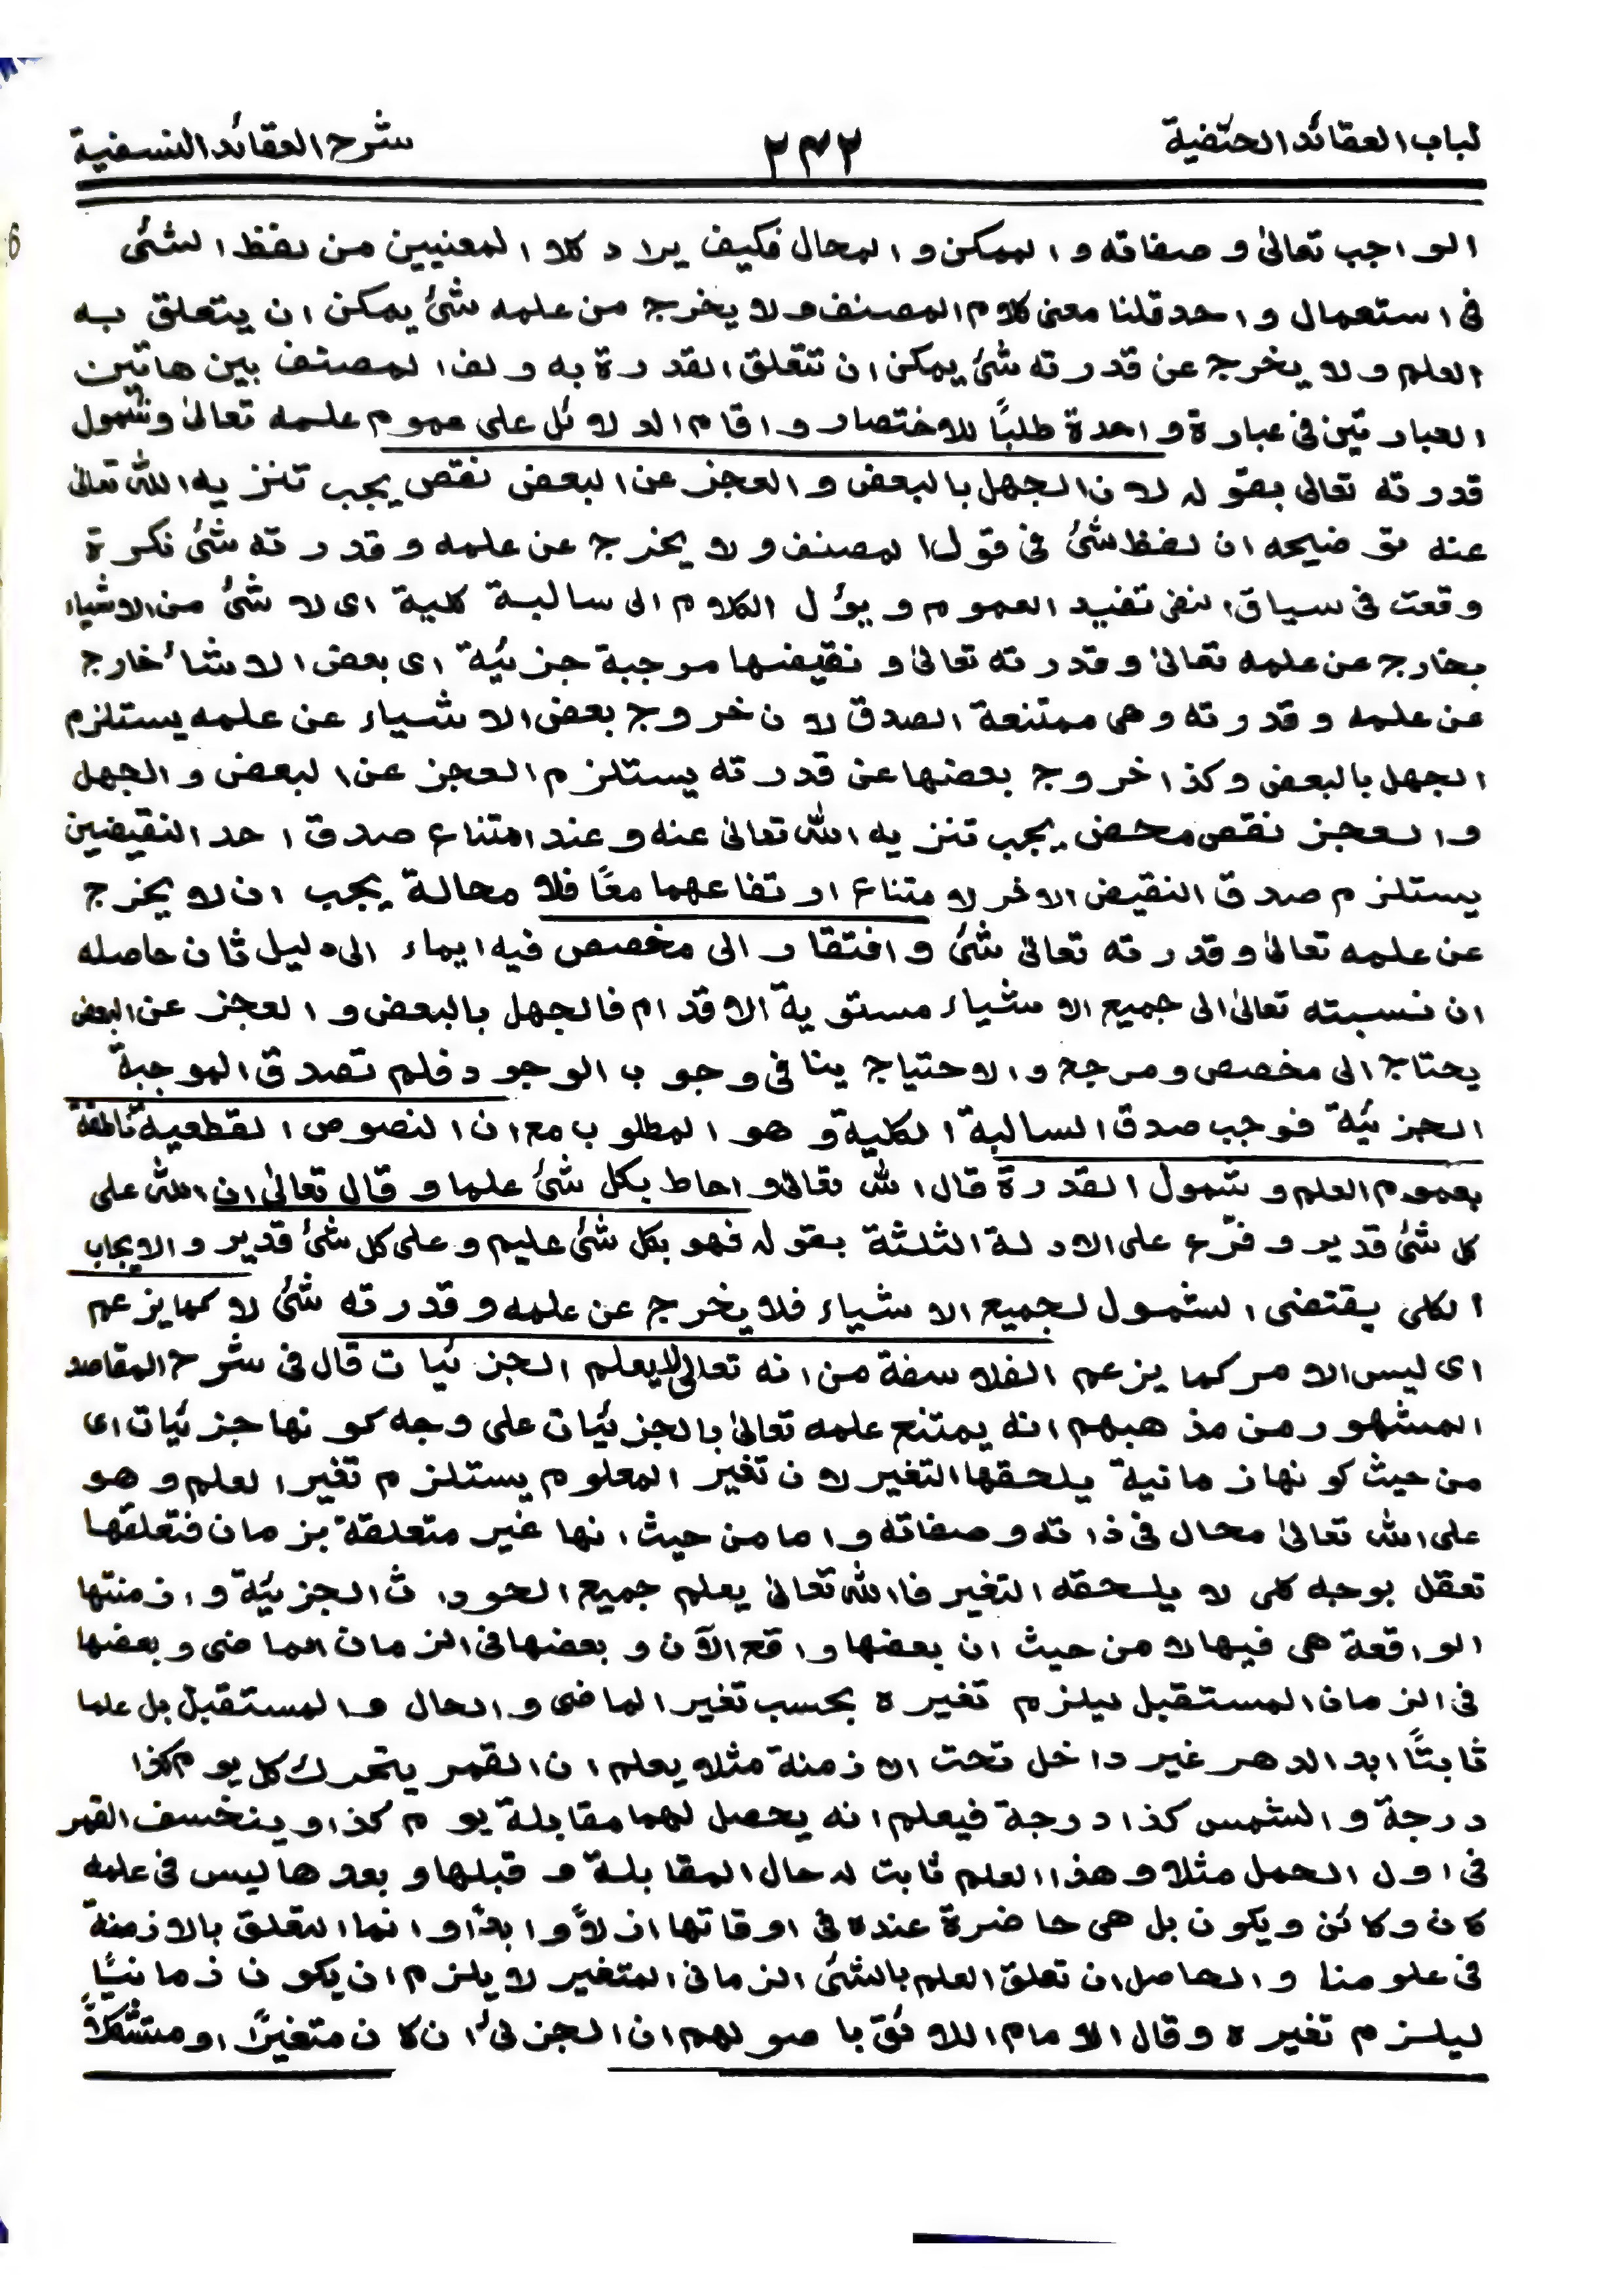 لباب العقائد الحنفية ٢٣٢ شرح العقائد النسفية
الواجب تعالیٰ و صفاته و الممكن و المحال فكيف يراد كلا المعنيين من لفظ الشئ
فی استعمال واحد قلنا معنی كلام المصنف ولا يخرج من علمه شئ يمكن ان يتعلق به
العلم ولا يخرج عن قدرته شئ يمكن ان تتعلق القدرة به ولف المصنف بين هاتين
العبارتين فی عبارة واحدة طلبًا للاختصار و اقام الدلائل علی عموم علمه تعالیٰ وشمول
قدرته تعالی بقوله لان الجهل بالبعض و العجز عن البعض نقص يجب تنزيه الله تعالیٰ
عنه توضيحه ان لفظ شئ فی قول المصنف ولا يخرج عن علمه و قدرته شئ نكرة
وقعت فی سياق النفی تفيد العموم و يؤل الكلام الی سالبة كلية ای لا شئ من الاشياء
بخارج عن علمه تعالیٰ و قدرته تعالیٰ و نقيضها موجبة جزئية ای بعض الاشاء خارج
عن علمه و قدرته و هی ممتنعة الصدق لان خروج بعض الاشياء عن علمه يستلزم
الجهل بالبعض و كذا خروج بعضها عن قدرته يستلزم العجز عن البعض و الجهل
و العجز نقص محض يجب تنزيه الله تعالیٰ عنه و عند امتناع صدق احد النقيضين
يستلزم صدق النقيض الاخر لامتناع ارتفاعهما معًا فلا محالة يجب ان لا يخرج
عن علمه تعالیٰ و قدرته تعالیٰ شئ و افتقار الی مخصص فيه ايماء الی دليل ثان حاصله
ان نسبته تعالیٰ الی جميع الاشياء مستوية الاقدام فالجهل بالبعض و العجز عن البعض
يحتاج الی مخصص و مرجح و الاحتياج ينافی وجوب الوجود فلم تصدق الموجبة
الجزئية فوجب صدق السالبة الكلية و هو المطلوب مع ان النصوص القطعية ناطقة
بعموم العلم و شمول القدرة قال الله تعالیٰ و احاط بكل شئ علما و قال تعالیٰ ان الله علی
كل شئ قدير و فرّع علی الادلة الثلثة بقوله فهو بكل شئ عليم و علی كل شئ قدير و الايجاب
الكلی يقتضی الشمول لجميع الاشياء فلا يخرج عن علمه و قدرته شئ لا كما يزعم
ای ليس الامر كما يزعم الفلاسفة من انه تعالیٰ لا يعلم الجزئيات قال فی شرح المقاصد
المشهور من مذهبهم انه يمتنع علمه تعالیٰ بالجزئيات علی وجه كونها جزئيات ای
من حيث كونها زمانية يلحقها التغير لان تغير المعلوم يستلزم تغير العلم و هو
علی الله تعالیٰ محال فی ذاته و صفاته و اما من حيث انها غير متعلقة بزمان فتعلقها
تعقل بوجه كلی لا يلحقه التغير فالله تعالیٰ يعلم جميع الحوادث الجزئية و ازمنتها
الواقعة هی فيها لا من حيث ان بعضها واقع الآن و بعضها فی الزمان الماضی و بعضها
فی الزمان المستقبل ليلزم تغيره بحسب تغير الماضی و الحال و المستقبل بل علما
ثابتًا ابد الدهر غير داخل تحت الازمنة مثلا يعلم ان القمر يتحرك كل يوم كذا
درجة و الشمس كذا درجة فيعلم انه يحصل لهما مقابلة يوم كذا و ينخسف القمر
فی اول الحمل مثلا و هذا العلم ثابت له حال المقابلة و قبلها و بعدها ليس فی علمه
كان و كائن و يكون بل هی حاضرة عنده فی اوقاتها ازلاً و ابدًا و انما التعلق بالازمنة
فی علومنا و الحاصل ان تعلق العلم بالشئ الزمانی المتغير لا يلزم ان يكون زمانيًا
ليلزم تغيره و قال الامام اللائق باصولهم ان الجزئی ان كان متغيرًا او متشكلاً